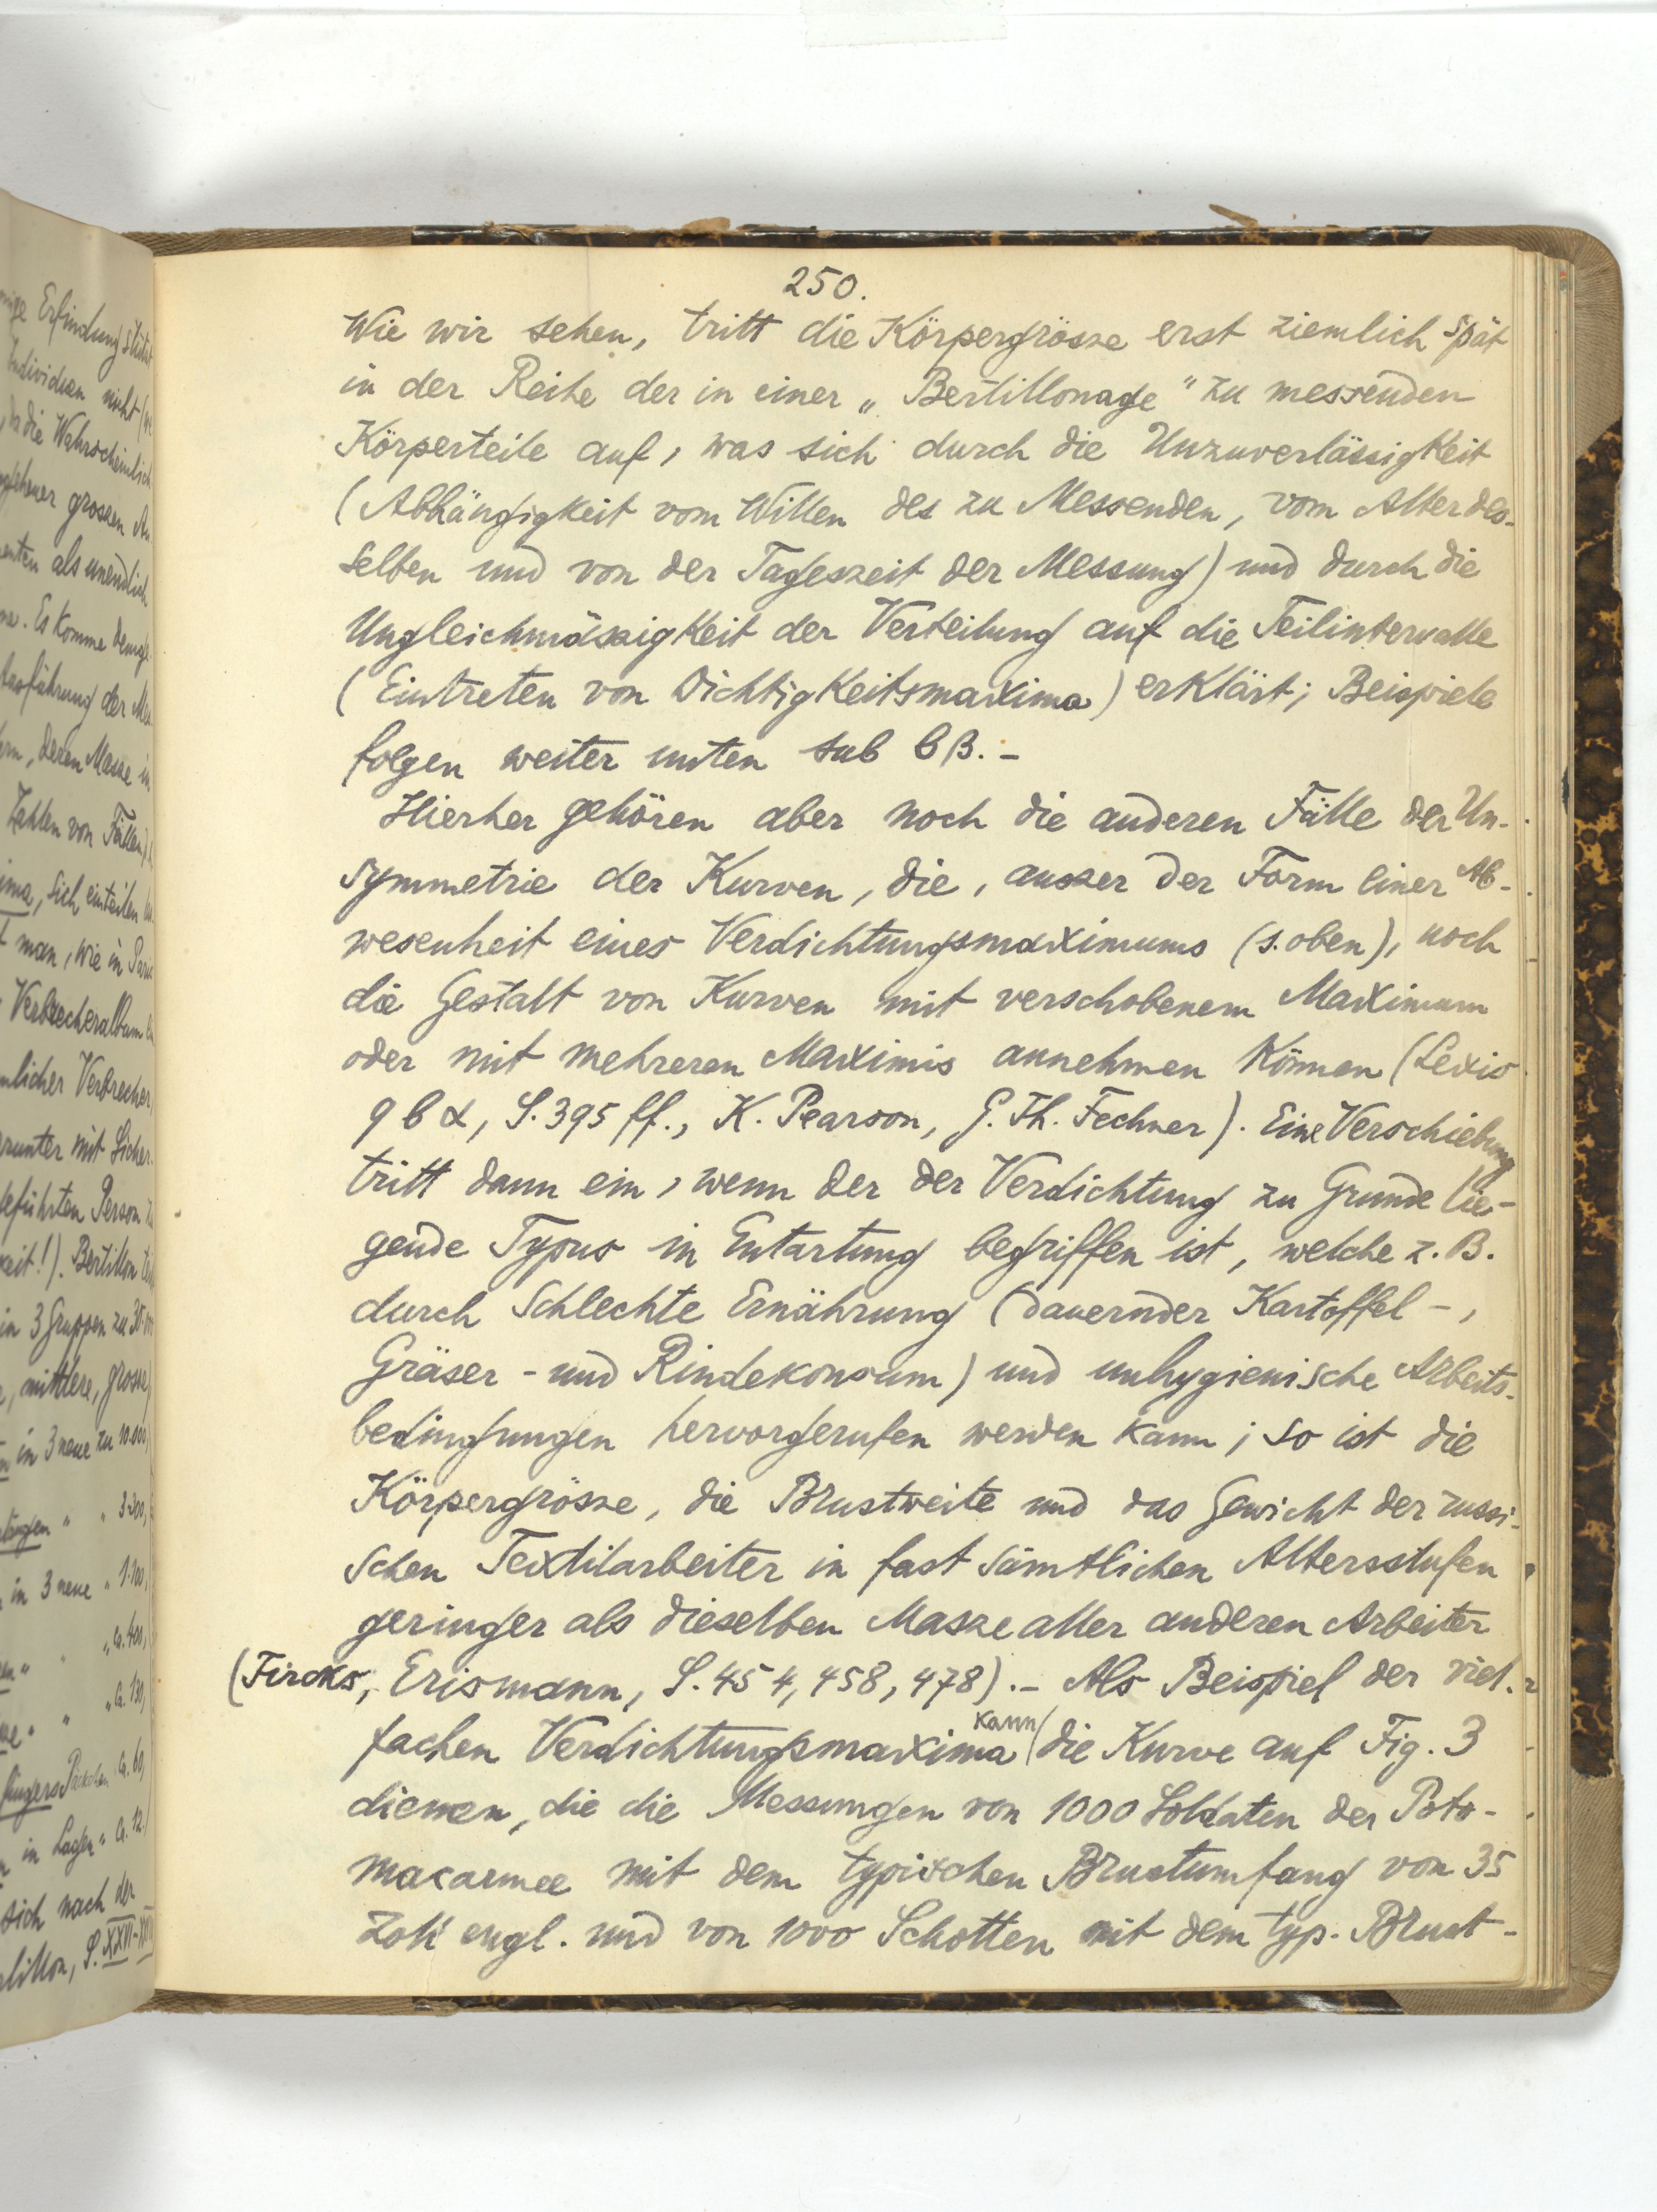 250.
Wie wir sehen, tritt die Körpergrösse erst ziemlich spät
in der Reihe der in einer „Bertillonage" zu messenden
Körperteile auf, was sich durch die Unzuverlässigkeit
(Abhängigkeit vom Willen des zu Messenden, vom Alter des-
selben und von der Tageszeit der Messung) und durch die
Ungleichmässigkeit der Verteilung auf die Teilintervalle
(Eintreten von Dichtigkeitsmaxima) erklärt; Beispiele
folgen weiter unten sub b β. –
Hierher gehören aber noch die anderen Fälle der Un-
symmetrie der Kurven, die, ausser der Form einer Ab-
wesenheit eines Verdichtungsmaximums (s. oben), noch
die Gestalt von Kurven mit verschobenem Maximum
oder mit mehreren Maximis annehmen können (Lexis
9 b α, S. 395 ff., K. Pearson, G. Th. Fechner). Eine Verschiebung
tritt dann ein, wenn der der Verdichtung zu Grunde lie-
gende Typus in Entartung begriffen ist, welche z. B.
durch schlechte Ernährung (dauernder Kartoffel-,
Gräser- und Rindekonsum) und unhygienische Arbeits-
bedingungen hervorgerufen werden kann; so ist die
Körpergrösse, die Brustweite und das Gewicht der russi-
schen Textilarbeiter in fast sämtlichen Altersstufen
geringer als dieselben Masse aller anderen Arbeiter
(Fircks, Erismann, S. 454, 458, 478). – Als Beispiel der viel-
fachen Verdichtungsmaxima kann die Kurve auf Fig. 3
dienen, die die Messungen von 1000 Soldaten der Poto-
macarmee mit dem typischen Brustumfang von 35
Zoll engl. und von 1000 Schotten mit dem typ. Brust-